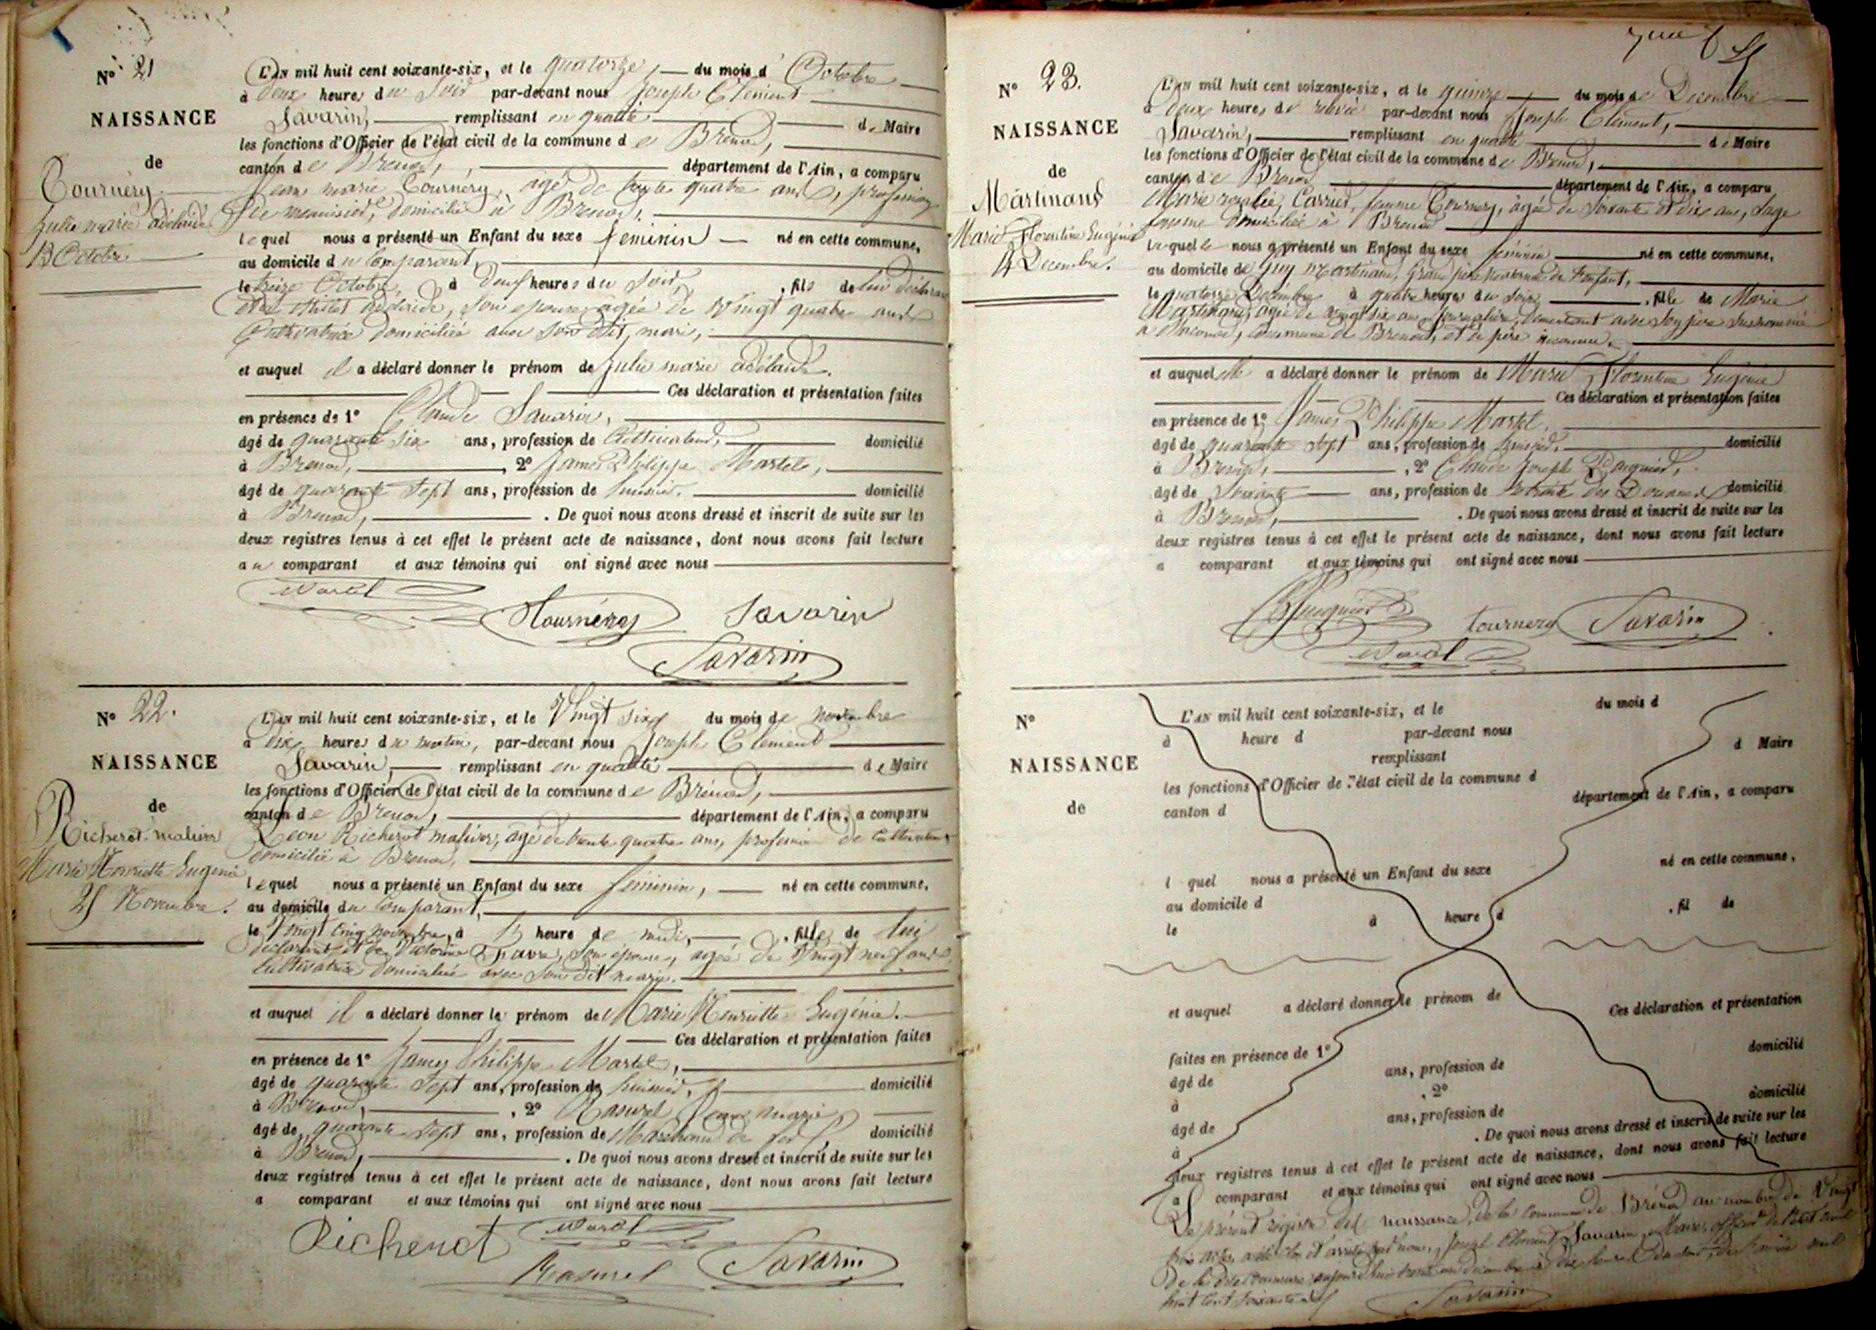 N° 21
NAISSANCE
de
Tournéry
Julie marie adélaide
13 Octobre
L'AN mil huit cent soixante-six, et le quatorze, du mois d'Octobre
à deux heures du soir par-devant nous Joseph Clément
Savarin, remplissant en qualité de Maire
les fonctions d'Officier de l'état civil de la commune de Brénod,
canton de Brenod, département de l'Ain, a comparu
Jean marie Tournéry, agé de trente quatre ans, profession
de menuisier, domicilié à Brenod,
lequel nous a présenté un Enfant du sexe féminin né en cette commune,
au domicile du comparant,
le treize Octobre, à heures du soir, , fils de lui déclarant
adélaide, son épouse, agée de vingt quatre ans
Cultivatrice domiciliée avec son dit mari,
et auquel il a déclaré donner le prénom de Julie marie adélaide.
Ces déclaration et présentation faites
en présence de 1° Claude Savarin,
âgé de quarante six ans, profession de Cultivateur, domicilié
à Brenod, , 2° James Philippe Martel,
âgé de quarante sept ans, profession de huissier. domicilié
à Brenod, . De quoi nous avons dressé et inscrit de suite sur les
deux registres tenus à cet effet le présent acte de naissance, dont nous avons fait lecture
au comparant et aux témoins qui ont signé avec nous
Martel Tournéry Savarin
Savarin
N° 22.
NAISSANCE
de
Richerot-malivers
Marie Henriette Eugénie
25 Novembre.
L'AN mil huit cent soixante-six, et le Vingt six du mois de novembre
à dix heures du matin, par-devant nous Joseph Clément
Savarin, remplissant en qualité de Maire
les fonctions d'Officier de l'état civil de la commune de Brénod,
canton de Brenod, département de l'Ain, a comparu
Léon Richerot malivers, agé de trente quatre ans, profession de Cultivateur
domicilié à Brenod,
lequel nous a présenté un Enfant du sexe féminin, né en cette commune,
au domicile du Comparant,
le Vingt cinq novembre, à heure de midi, , fille de lui
déclarant et de Victorine son épouse, agée de Vingt neuf ans
Cultivatrice domiciliée avec son dit mari.
et auquel il a déclaré donner le prénom de Marie Henriette Eugénie.
Ces déclaration et présentation faites
en présence de 1° James Philippe Martel,
âgé de quarante sept ans, profession de huissier, domicilié
à Brenod, , 2° Rasurel Jean marie
âgé de quarante sept ans, profession de Marchand de fer domicilié
à Brenod, . De quoi nous avons dressé et inscrit de suite sur les
deux registres tenus à cet effet le présent acte de naissance, dont nous avons fait lecture
a comparant et aux témoins qui ont signé avec nous
Richerot Martel
Rasurel Savarin
N° 23.
NAISSANCE
de
Martinand
Marie Florentine Eugénie
14 Decembre.
L'AN mil huit cent soixante-six, et le quinze du mois de Decembre
à deux heures de relevée par-devant nous Joseph Clément,
Savarin, remplissant en qualité de Maire
les fonctions d'Officier de l'état civil de la commune de Brenod,
canton de Brenod département de l'Ain, a comparu
Marie rosalie Carrier, femme Tournery, agée de soixante et dix ans, Sage
femme domiciliée à Brenod
laquelle nous a présenté un Enfant du sexe féminin né en cette commune,
au domicile de Guy Martinand, Grand père maternel de l'enfant,
le quatorze Decembre à quatre heures du soir , fille de Marie
Martinand, agée de vingt six ans journalière, demeurant avec son père susnommé
à commune de Brenod, et de père inconnu.
et auquel elle a déclaré donner le prénom de Marie Florentine Eugénie
Ces déclaration et présentation faites
en présence de 1° James Philippe Martel,
âgé de quarante sept ans, profession de huissier, domicilié
à Brenod, , 2° Claude Joseph
âgé de soixante ans, profession de retraité des Douanes domicilié
à Brenod, . De quoi nous avons dressé et inscrit de suite sur les
deux registres tenus à cet effet le présent acte de naissance, dont nous avons fait lecture
a comparant et aux témoins qui ont signé avec nous
tournery Savarin
Martel
N°
NAISSANCE
de
L'AN mil huit cent soixante-six, et le du mois d
à heure d par-devant nous
remplissant d Maire
les fonctions d'Officier de l'état civil de la commune d
canton d département de l'Ain, a comparu
l quel nous a présenté un Enfant du sexe né en cette commune,
au domicile d
le à heure d , fil de
et auquel a déclaré donner le prénom de
Ces déclaration et présentation
faites en présence de 1°
âgé de ans, profession de domicilié
à , 2°
âgé de ans, profession de domicilié
à . De quoi nous avons dressé et inscrit de suite sur les
deux registres tenus à cet effet le présent acte de naissance, dont nous avons fait lecture
a comparant et aux témoins qui ont signé avec nous
Le présent registre des naissances, de la Commune de Brénod au nombre de Vingt
trois actes a été clos et arrêté par nous, Joseph Clément Savarin, Maire, officier de l'état civil
de la dite commune aujourd'hui trente un décembre à dix heures du soir, de l'année mil
huit cent soixante six
Savarin